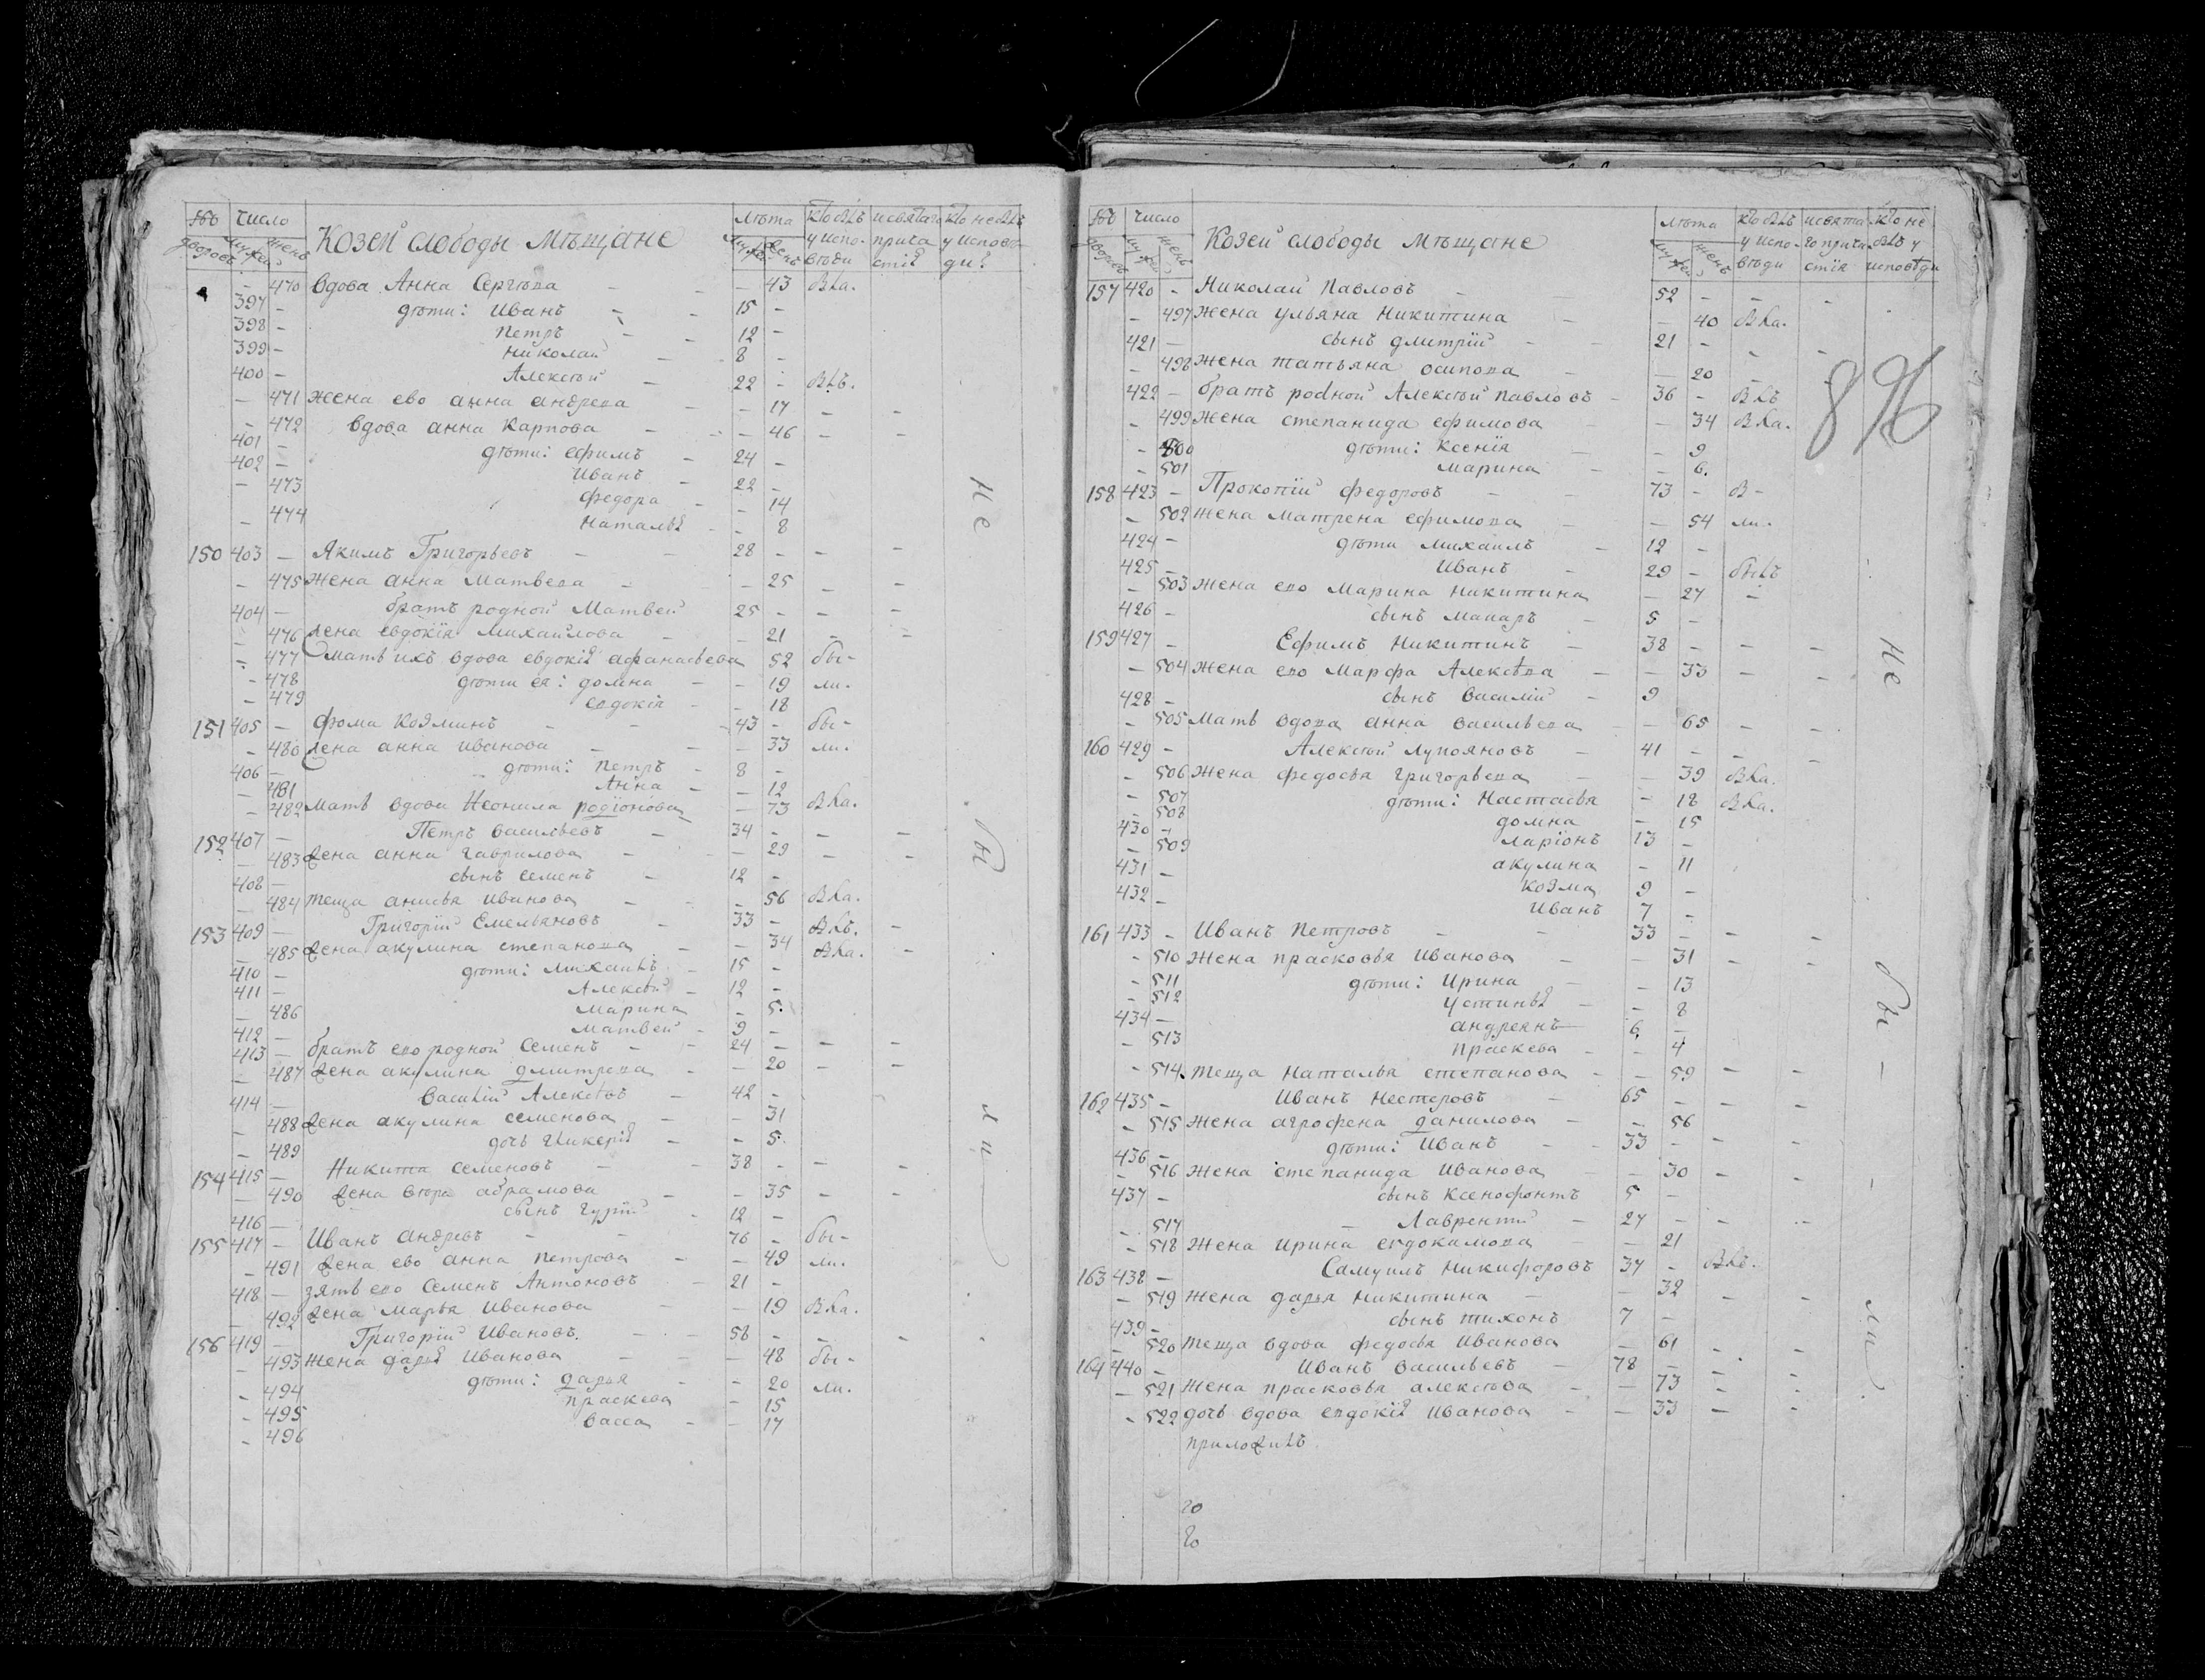 № число Козей слободы Мѣщане лѣта кто былъ и святаго кто не былъ
дворовъ мужей женъ мужей женъ у испо- прича у исповѣ
вѣди стія ди
- 470 вдова Анна Сергѣева - - 43 была.
397 - дѣти: Иванъ - - 15 -
398 - Петръ - - 12 -
399 - Николай - - 8 -
400 - Алексѣй - 22 - былъ.
- 471 жена ево анна андрева - - 17 - -
- 472 вдова анна Карпова - - 46 - -
401 - дѣти: ефимъ - 24 -
402 - Иванъ - 22 -
- 473 федора - - 14
- 474 наталья - - 8
150 403 - Якимъ Григорьевъ - - 28 - - -
- 475 жена анна Матвева - - 25 - -
404 - братъ родной Матвей 25 - - -
- 476 жена евдокія Михайлова - - 21 - -
- 477 мать ихъ вдова евдокія афанасьева 52 бы-
- 478 дѣти ея: домна - - 19 ли.
- 479 евдокія - - 18
151 405 - фома Козминъ - - 43 - бы-
- 480 жена анна иванова - - 33 ли.
406 - дѣти: Петръ - 8 -
- 481 Анна - - 12
- 482 мать вдова Неонила родіонова - 73 была.
152 407 - Петръ васильевъ - 34 - - -
- 483 жена анна гаврилова - - 29 - -
408 - сынъ семенъ - 12 -
- 484 теща анисья иванова - - 56 была.
153 409 - Григорій Емельяновъ - 33 - былъ. -
- 485 жена акулина степанова - - 34 была. -
410 - дѣти: михаилъ - 15 -
411 - Алексѣй - 12 -
- 486 марина - 5.
412 - матвей - 9 -
413 - братъ ево родной Семенъ - - 24 - - -
- 487 жена акулина дмитрева - - 20 - -
414 - василій Алексѣевъ - 42 -
- 488 жена акулина семенова - - 31
- 489 дочь гликерія - - 5.
154 415 - Никита семеновъ - - 38 - - -
- 490 жена абрамова - - 35 - -
416 - сынъ гурій - 12 -
155 417 - Иванъ андревъ - - 76 - бы-
- 491 жена ево анна петрова - - 49 ли.
418 - зять ево Семенъ Антоновъ - 21 -
- 492 жена марья иванова - - 19 была.
156 419 - Григорій Ивановъ. - - 58 - - -
- 493 жена дарья иванова - - 48 бы-
- 494 дѣти: дарья - - 20 ли.
- 495 праскева - 15
- 496 васса - - 17
не
бы
ли
№ число Козей слободы мѣщане лѣта кто былъ и свята кто не
дворовъ мужей женъ мужей женъ у испо- го прича- былъ у
вѣди стія исповѣди
157 420 - Николай Павловъ - - 52 - - -
- 497 жена ульяна Никитина - - 40 была.
421 - сынъ дмитрій - - 21 - - -
- 498 жена татьяна осипова - - 20 -
896
422 - братъ родной Алексѣй павловъ - 36 - былъ
- 499 жена степанида ефимова - - 34 была.
- 500 дѣти: Ксенія - - 9
- 501 марина - - 6.
158 423 - Прокопій федоровъ - - 73 - бы-
- 502 жена матрена ефимова - - 54 ли.
424 - дѣти михаилъ - 12 -
425 - Иванъ - 29 - былъ
- 503 жена ево марина никитина - 27 -
426 - сынъ макаръ - 5 -
159 427 - Ефимъ Никитинъ - 38 - - -
- 504 жена ево марфа Алексѣева - - 33 - -
428 - сынъ василій - 9
- 505 мать вдова анна васильева - - 65 - -
160 429 - Алексѣй Лупояновъ - 41 - - -
- 506 жена федосья григорьева - - 39 была.
- 507 дѣти: Настасья - 18 была.
- 508 домна - 15
430 - ларіонъ 13 -
- 509 акулина - 11
431 - козма 9 -
432 - иванъ 7 -
161 433 - Иванъ Петровъ - - 33 - - -
- 510 жена прасковья иванова - - 31 - -
- 511 дѣти: Ирина - - 13
- 512 устинья - - 8
434 - андреянъ 6 -
- 513 праскева - - 4
- 514 теща Наталья степанова - - 59 - -
162 435 - Иванъ Нестеровъ - 65 - - -
- 515 жена агрофена данилова - - 56
436 - дѣти: Иванъ - - 33 - - -
- 516 жена степанида иванова - - 30 - -
437 - сынъ ксенофонтъ 5 -
- 517 - Лаврентій - 27 - - -
- 518 жена ирина евдокимова - - 21
163 438 - Самуилъ Никифоровъ 37 - былъ.
- 519 жена дарья Никитина - - 32 - -
439 - сынъ тихонъ 7 -
- 520 теща вдова федосья иванова - 61 - -
164 440 - иванъ васильевъ - 78 - - -
- 521 жена прасковья алексѣева - - 73 - -
- 522 дочь вдова евдокія иванова - - 33 - -
приложилъ
го
го
не
бы -
ли